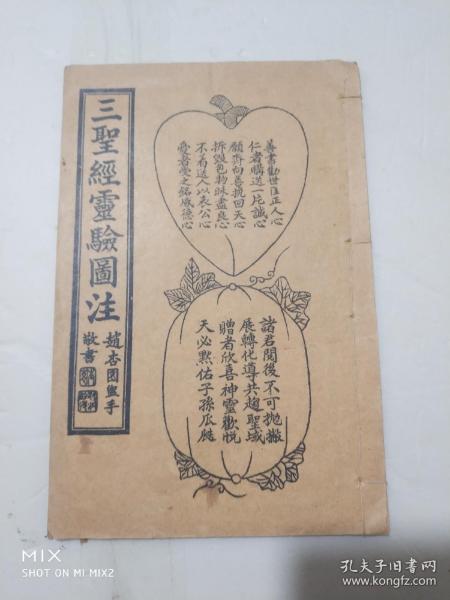 三聖經靈驗圖注
趙杏園盥手
敬書
善書勸世匡正人心
仁者購送一片誠心
願齊向善挽回天心
拆毀包物昧盡良心
不若送人以表公心
愛者愛之銘感德心
諸君閱後不可拋撇
展轉化導共趨聖域
贈者欣喜神靈歡悅
天必默佑子孫瓜瓞
MIX
SHOT ON MI MIX2
孔夫子旧书网
www.kongfz.com